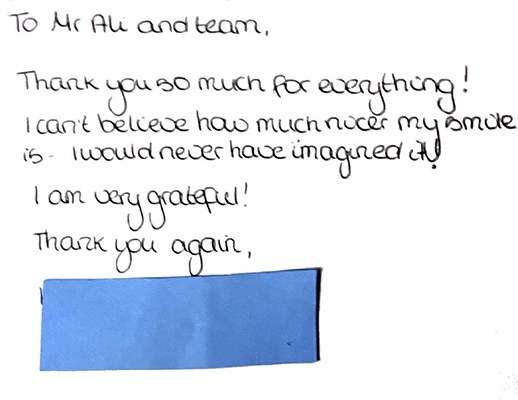 To Mr Ali and team,
Thank you so much for everything!
I can't believe how much nicer my smile
is. I would never have imagined it!
I am very grateful!
Thank you again,